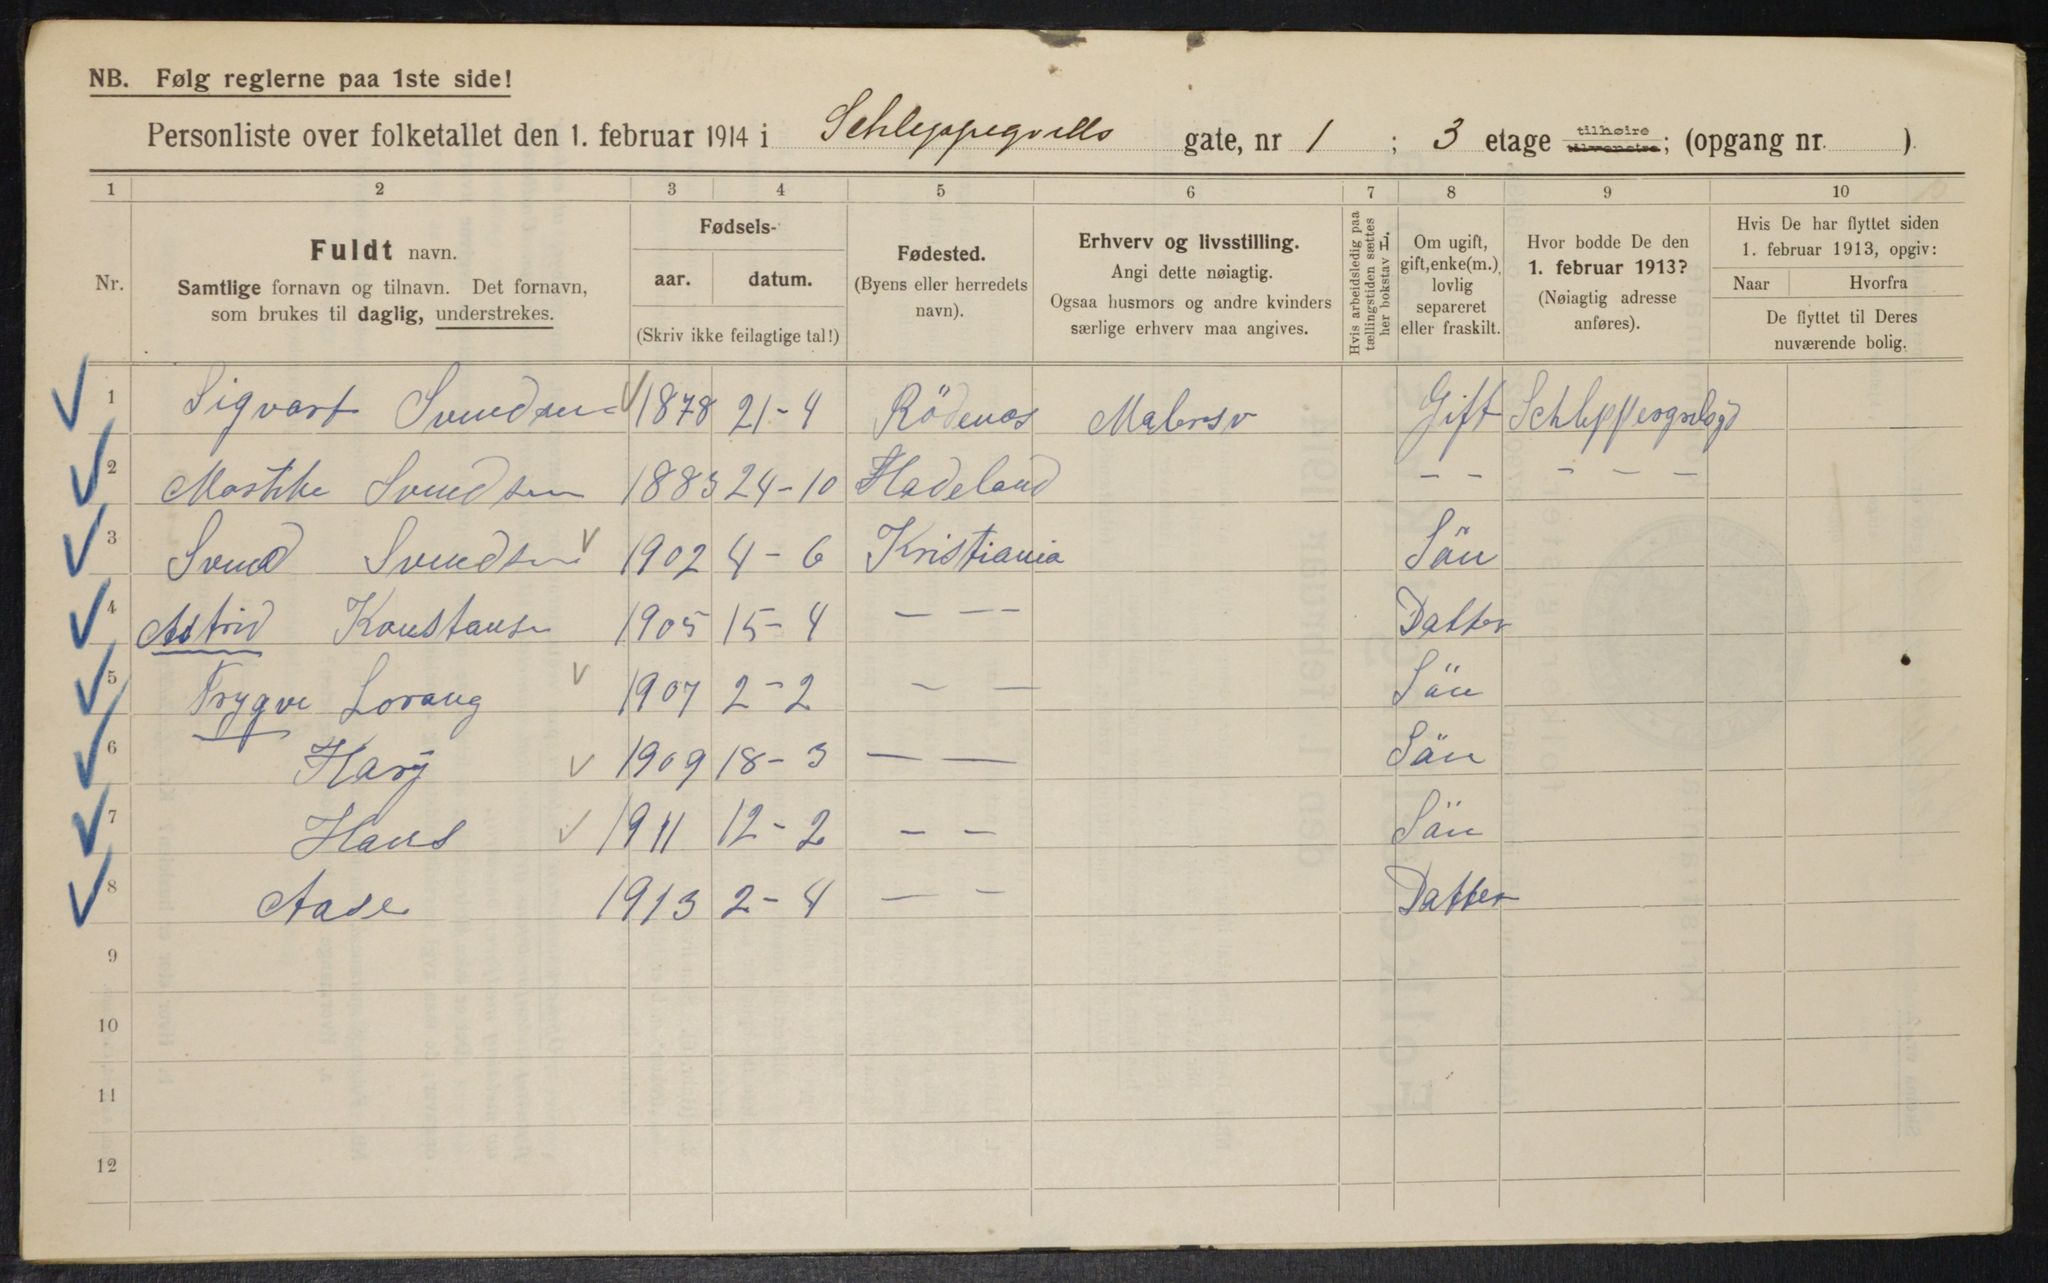 NB. Følg reglerne paa 1ste side!
Personliste over folketallet den 1. februar 1914 i Schleppegrells gate, nr 1 ; 3 etage tilhøire tilvenstre; (opgang nr. ).
1 2 3 4 5 6 7 8 9 10
Nr.
Fuldt navn.
Samtlige fornavn og tilnavn. Det fornavn,
som brukes til daglig, understrekes.
Fødsels-
aar. datum.
(Skriv ikke feilagtige tal!)
Fødested.
(Byens eller herredets
navn).
Erhverv og livsstilling.
Angi dette nøiagtig.
Ogsaa husmors og andre kvinders
særlige erhverv maa angives.
Hvis arbeidsledig paa
tællingstiden sættes
her bokstav L.
Om ugift,
gift, enke(m.),
lovlig
separeret
eller fraskilt.
Hvor bodde De den
1. februar 1913?
(Nøiagtig adresse
anføres).
Hvis De har flyttet siden
1. februar 1913, opgiv:
Naar Hvorfra
De flyttet til Deres
nuværende bolig.
1 Sigvart Svendsen 1878 21-4 Rödenæs Malersv Gift
2 Svendsen 1883 24-10 Hadeland - - - - -
3 Svend Svendsen 1902 4-6 Kristiania Sön
4 Astrid Konstanse 1905 15-4 - - - Datter
5 Trygve Lorang 1907 2-2 - - Sön
6 Harÿ 1909 18-3 - - Sön
7 Hans 1911 12-2 - - Sön
8 Aase 1913 2-4 - - Datter
9
10
11
12